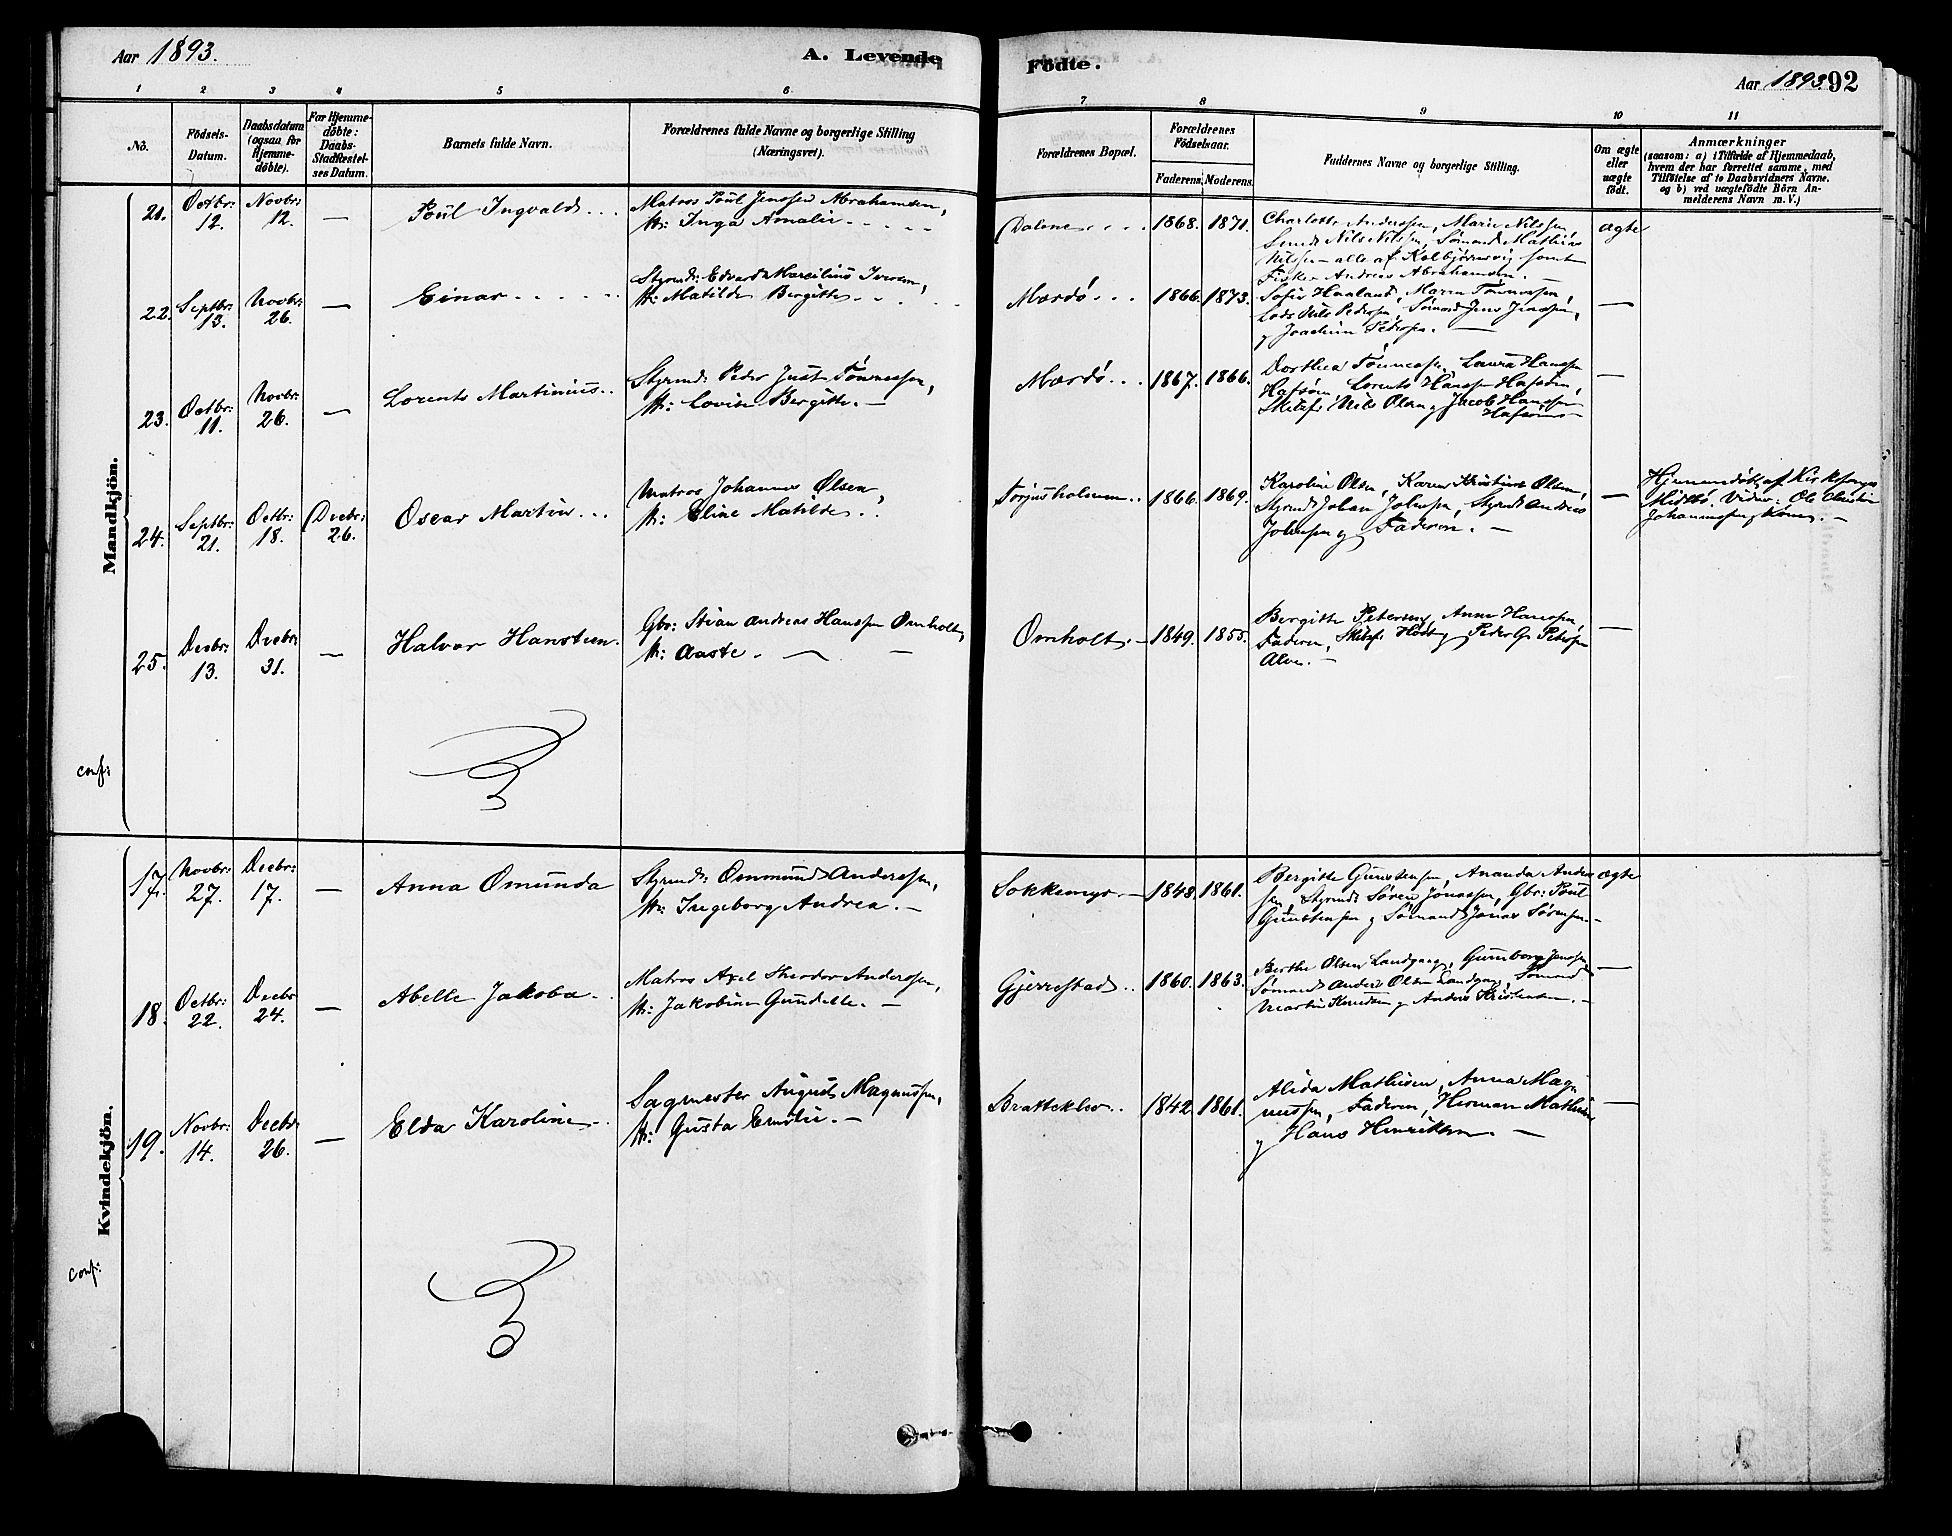 Aar 1893.
A. Levende
Födte.
Aar 1893. 92
1 2 3 4 5 6 7 8 9 10 11
No.
Födsels-Datum.
Daabsdatum (ogsaa for Hjemme-döbte).
For Hjemme-döbte: Daabs-Stadfæstel-ses Datum.
Barnets fulde Navn.
Forældrenes fulde Navne og borgerlige Stilling (Næringsvei).
Forældrenes Bopæl.
Forældrenes Födselsaar.
Faderens. Moderens.
Faddernes Navne og borgerlige Stilling.
Om ægte eller uægte födt.
Anmærkninger
(saasom: a) i Tilfælde af Hjemmedaab,
hvem der har forrettet samme, med
Tilföielse af to Daabsvidners Navne.
og b) ved uægtefödte Börn An-
melderens Navn m. V.)
Mandkjön.
21. Octbr: 12. Novbr: 12. — Poul Ingvald
Matros Poul Jenssen Abrahamsen,
H: Inga Amalie
Dalene 1868. 1871.
Charlotte Anderssen, Marie Nilssen,
Nils Nilssen, Sömand Mathias
Nilssen – alle af Kolbjörnsvig samt
Fisker Andreas Abrahamsen. —
ægte
22. Septbr: 13. Novbr: 26. — Einar
Styrmd: Edvard Marcilius Iversen,
H: Matilde Bergitte
Mærdö 1866. 1873.
Sofie Haaland, Maren Tönnessen,
Lods Nils Pedersen, Sömand Jens Jenssen,
og Joachim Pedersen. —
—
23. Octbr: 11. Novbr: 26. — Lorents Martinius
Styrmd: Peder Just Tönnessen,
H: Lovise Bergitte. —
Mærdö 1867. 1866.
Dorthea Tönnessen, Laura Hanssen
Hafsöen, Lorents Hanssen Hafsöen,
Nils Olsen og Jacob Hanssen
—
24. Septbr: 21. Octbr: 18. Decbr: 26. Oscar Martin
Matros Johannes Olsen,
H: Eline Matilde
Torjusholmen 1866. 1869.
Karoline Olsen, Karen Kristine Olsen,
Styrmd: Johan Johnsen, Styrmd: Andreas
Johnsen og Faderen. —
—
Hjemmedöbt af Kirkesanger
Midtbö. Vidner: Ole Christian
Johannessen og Kone. —
25. Decbr: 13. Decbr: 31. — Halvor Hansteen.
Gbr: Stian Andreas Hanssen Ornholt,
H: Aaste. —
Ornholt. 1849. 1855.
Bergitte Petersen, Anna Hanssen,
Faderen, Peder G. Petersen
Alve. —
—
conf:
Kvindekjön.
17. Novbr: 27. Decbr: 17. — Anna Omunda
Styrmd: Ommund Anderssen,
H: Ingeborg Andrea. —
Sokkemyr 1848. 1861.
Bergitte Gunstensen, Ananda Ander
sen, Styrmd: Sören Jonassen, Gbr: Poul
Gunstensen og Sömand Jonas Sörensen. —
ægte
18. Octbr: 22. Decbr: 24. — Abelle Jakoba
Matros Axel Theodor Anderssen,
H: Jakobine Gundelle. —
Gjerrestad 1860. 1863.
Berthe Olsen Landgang, Gunborg Jenssen,
Sömand Anders Olsen Landgang, Sömand
Martin Knudsen og Anders Kristensen. —
—
19. Novbr: 14. Decbr: 26. — Elda Karoline
Sagmester August Magnussen,
H: Gusta Emilie. —
Bratteklev 1842 1861.
Alida Mathisen, Anna Mag
nussen, Faderen, Herman Mathisen
og Hans Henriksen. —
—
conf: